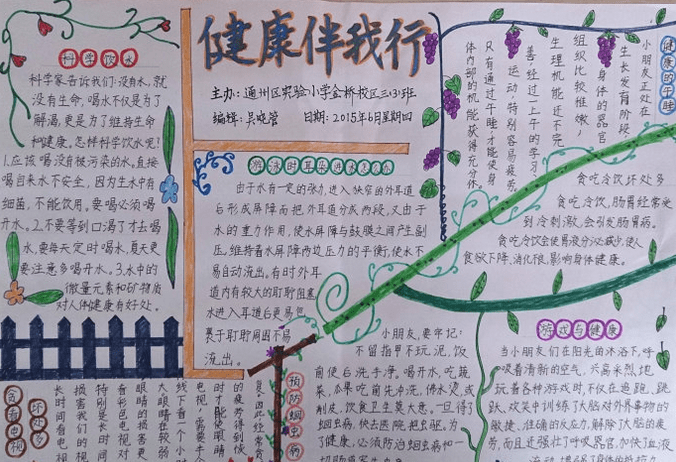 健康伴我行
主办：通州区实验小学金桥校区三(3)班
编辑：吴晓管 日期：2015年6月星期四
科学饮水
科学家告诉我们：没有水，就
没有生命，喝水不仅是为了
解渴，更是为了维持生命
和健康，怎样科学饮水呢？
1.应该喝没有被污染的水，直接
喝自来水不安全，因为生水中有
细菌，不能饮用。要喝必须喝
开水。2.不要等到口渴了才去喝
水，要每天定时喝水，夏天更
要注意多喝开水。3.水中的
微量元素和矿物质
对人体健康有好处。
游泳时耳朵进水怎么办
由于水有一定的张力，进入狭窄的外耳道
后形成屏障而把外耳道分成两段，又由于
水的重力作用，使水屏障与鼓膜之间产生副
压，维持着水屏障两边压力的平衡，使水不
易自动流出。有时外耳
道内有较大的耵聍阻塞
水进入耳道后更易包
裹于耵聍周围不易
流出。
健康的午睡
小朋友正处在
生长发育阶段
，身体的器官
组织比较稚嫩，
生理机能还不完
善，经过一上午的学习、
运动，特别容易疲劳，
只有通过午睡才能使身
体内部的机能获得充分休
贪吃冷饮坏处多
贪吃冷饮，肠胃经常受
到冷刺激，会引发肠胃病。
贪吃冷饮会使胃液分泌减少，使人
食欲下降，消化很，影响身体健康。
游戏与健康
当小朋友们在阳光的沐浴下，呼
吸着清新的空气，兴高采烈地
玩着各种游戏时，不仅在追跑、跳
跃、欢笑中训练了大脑对外界事物的
敏捷、准确的反应力，解除了大脑的疲
劳，而且还强壮了呼吸器官，加快了血液
预防蛔虫病
小朋友，要牢记：
不留指甲不玩泥，饭
前便后洗手净。喝开水，吃蔬
菜，瓜果吃前先冲洗，沸水烫，或
削皮，饮食卫生莫大意。一旦得了
蛔虫病，快去医院把虫驱。为
了健康，必须防治蛔虫病和一
贪看电视
坏处多
长时间看电视
损害我们的视
特别是长时间
看彩色电视对
眼睛的损害更
大，眼睛在较弱
线下看一个小时
电视，需要半
时才能使眼睛
的疲劳得到恢
复。因此经常贪